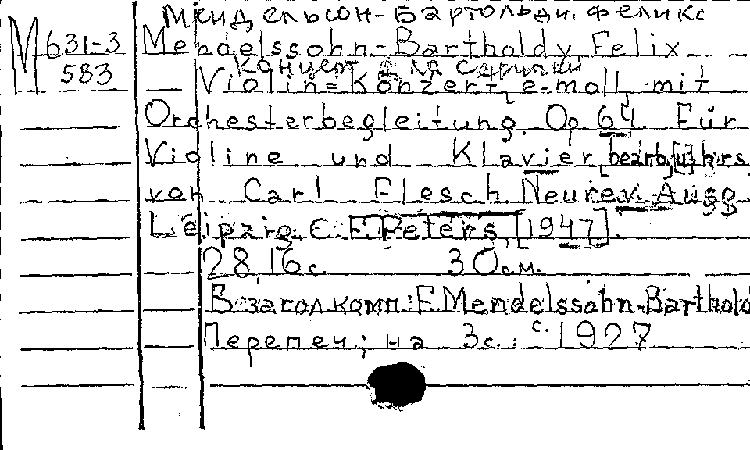 Мендельсон-Бартольди, Феликс
М631-3
583
Mendelssohn-Bartholdy Felix
Концерт для скрипки
Violin=Konzert, e-moll, mit
Orchesterbegleitung. Op. 64 Für
Violine und Klavier [bearb. [u] hrs.
von Carl Flesch. Neurev. Ausg
Leipzig, C. F. Peters, [1947].
28, 16 с. 30 см.
В загол. комп: F. Mendelssohn-Barthold
Перепеч; на 3 с.: с. 1927